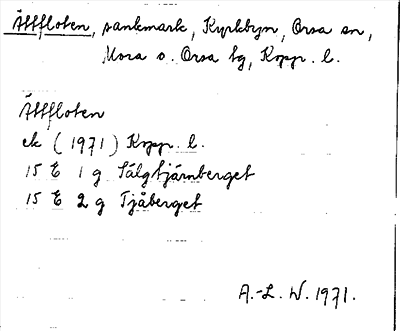 Ållfloten, sankmark, Kyrkbyn, Orsa sn,
Mora o. Orsa tg, Kopp. l.
Ållfloten
ek (1971) Kopp. l.
15 E 1 g Sälgtjärnberget
15 E 2 g Tjåberget
A.-L. W. 1971.